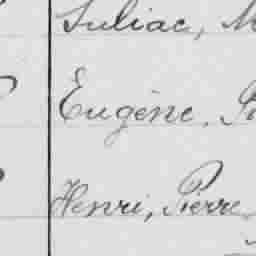 Suliac,
Eugène,
Henri, Pierre